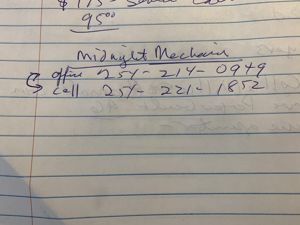 $ 175 - Service Call
95⁰⁰
Midnight Mechanic
office 254-214-0949
cell 254-221-1852